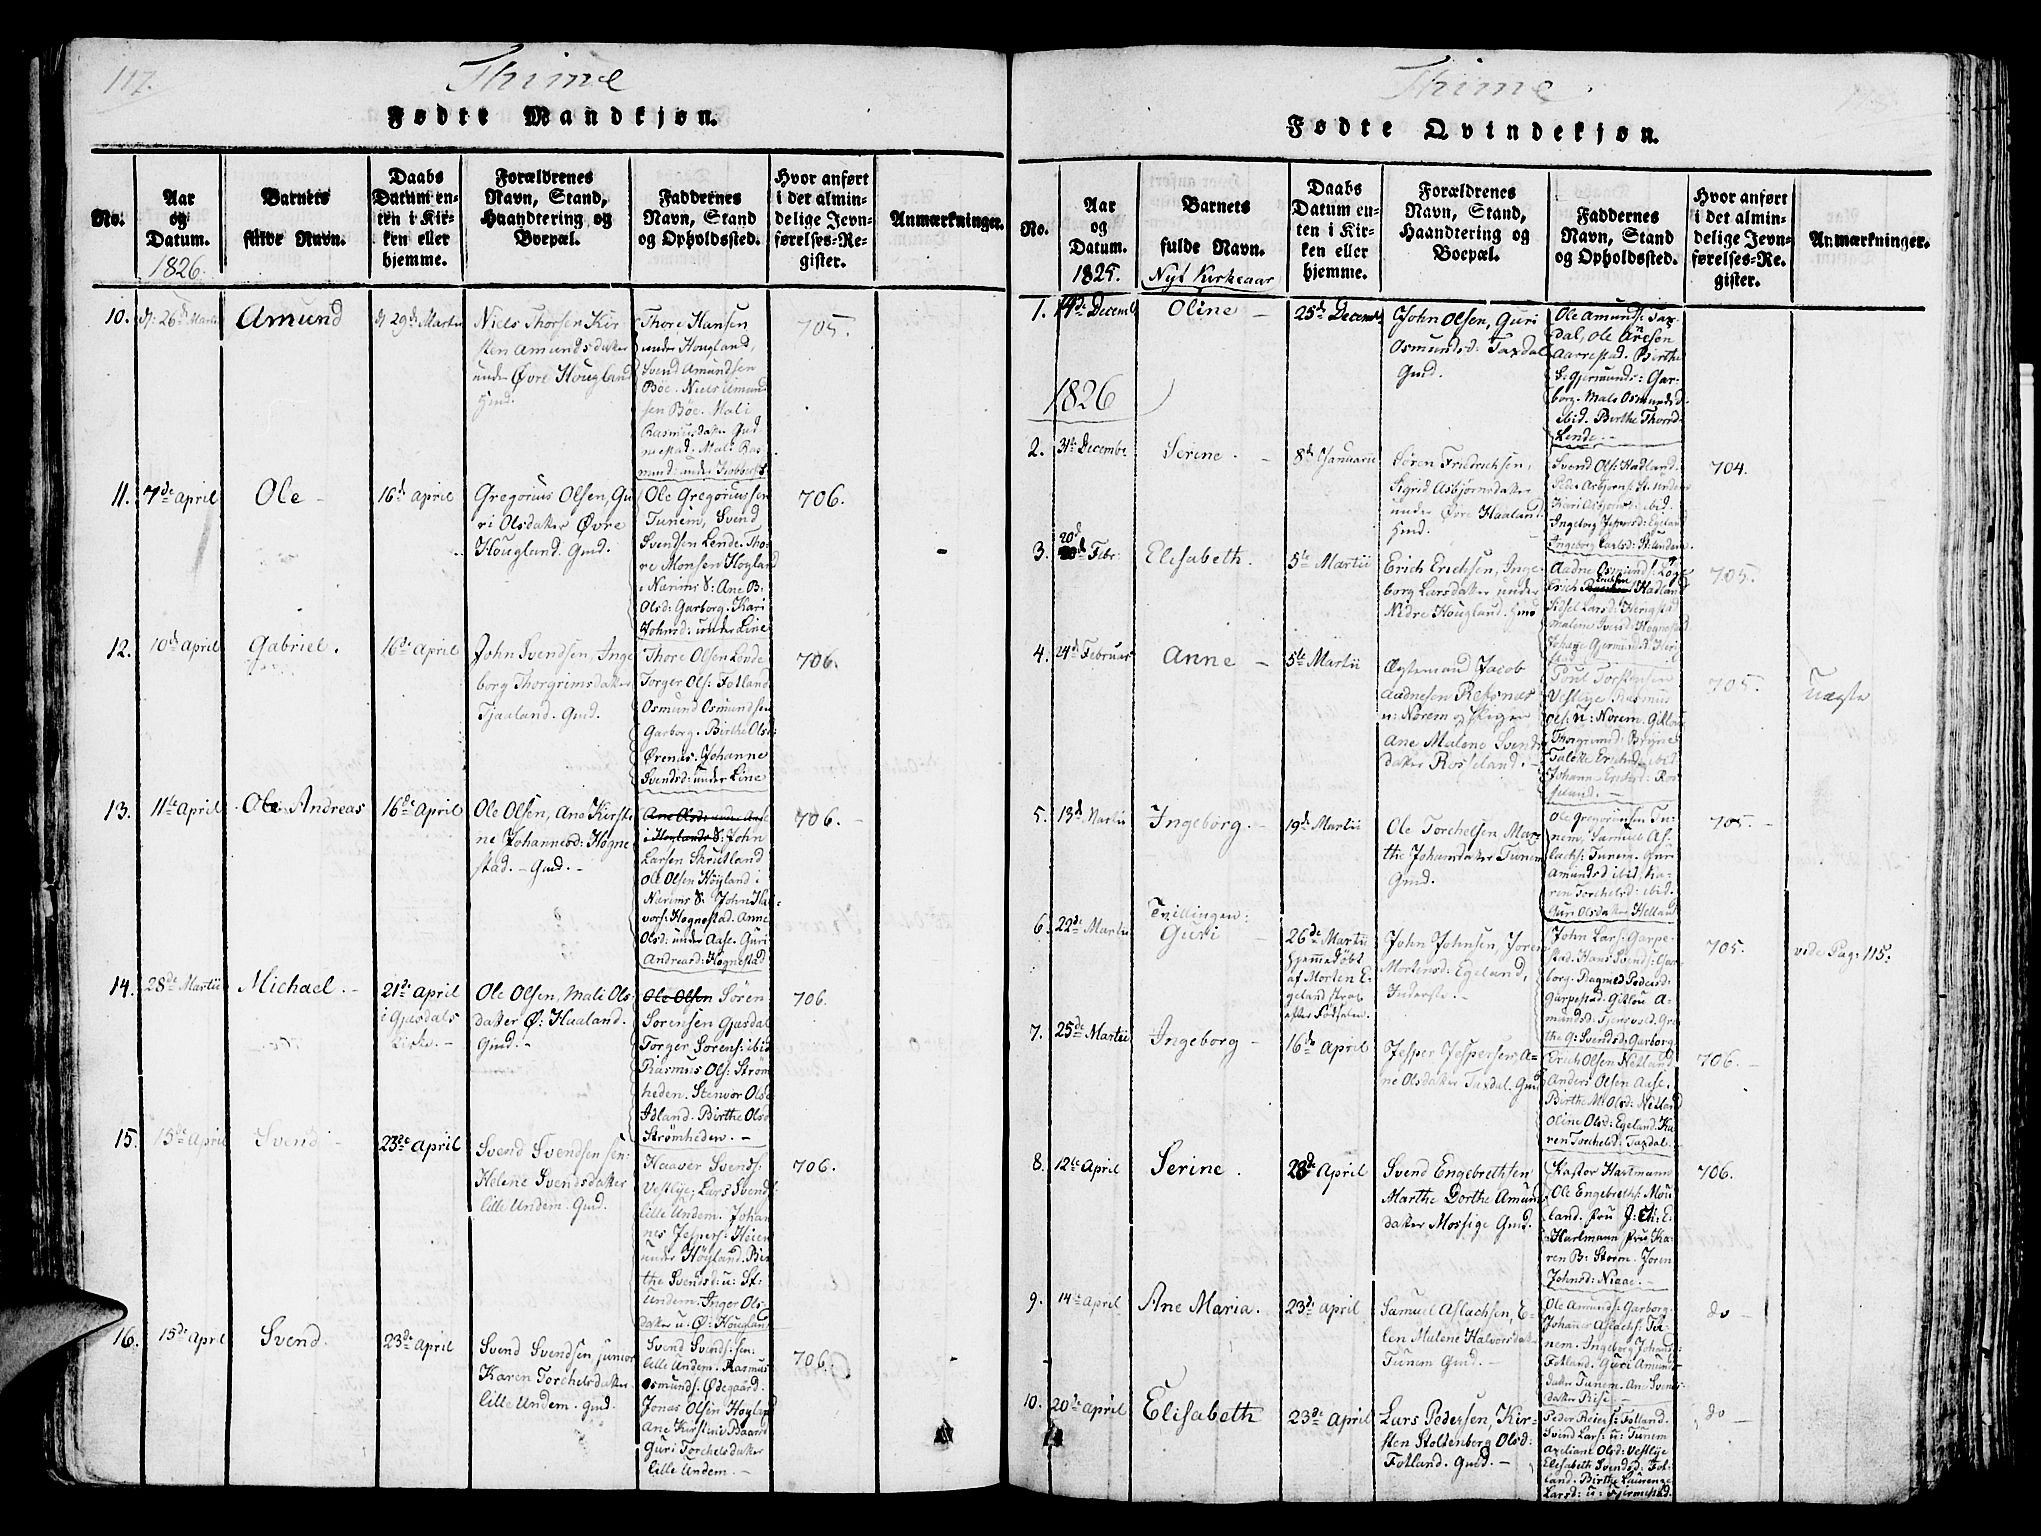 117.
Thime
Fødte Mandkjøn.
No.
Aar
og
Datum.
1826.
Barnets
fulde Navn.
Daabs
Datum en-
ten i Kir-
ken eller
hjemme.
Forældrenes
Navn, Stand,
Haandtering og
Boepæl.
Faddernes
Navn, Stand
og Opholdssted.
Hvor anført
i det almin-
delige Jevn-
førelses-Re-
gister.
Anmærkninger.
10.
d: 26de Martii
Amund
d 29de Martii
Niels Thorsen, Kir
sten Amundsdatter
under Øvre Hougland
Gmd.
Thore Hansen
under Hougland,
Svend Amundsen
Böe. Niels Amund
sen Böe. Mali
Rasmusdatter Gud
mestad. Mali Ras
705.
11.
7de April
Ole -
16de April
Gregorius Olsen, Gu
ri Olsdatter Øvre
Hougland. Gmd.
Ole Gregoriussen
Tunem, Svend
Svendsen Lende. Tho-
re Monsen Høyland
i Narims S: Ane B.
Olsd: Garborg. Kari
Johnsd: under Line
706.
12.
10de April
Gabriel.
16de April
John Svendsen, Inge
borg Thorgrimsdatter
Tjaaland. Gmd.
Thore Olsen Lende
Torger Ols: Fotland
Osmund Osmundsen
Garborg. Birthe Ols:
Ørenes. Johanne
Svendsd: under Line
706.
13.
11te April
Ole Andreas
16de April
Ole Olsen, Ane Kirsti
ne Johannesd: Högne
stad. - Gmd. -
i Hoglands S: John
Larsen Skrudland
Ole Olsen Höyland i
Narims S. John Hal-
vors: Hognestad. Anne
Olsd: under Aase. Guri
Andreasd: Hognestad
706. -
14.
28de Martii
Michael. -
21de April
i Gjæsdals
Kirke. -
Ole Olsen, Mali Ols-
datter Ø: Haaland.
Gmd. -
Ole Olsen Sören
Sörensen Gjæsdal
Torger Sörens: ibid
Rasmus Ols: Ström
heden. Stenvor Olsd
Idland. Birthe Olsd
Strömheden. -
706.
15.
15de April
Svend -
23de April
Svend Svendsen sen:
Helene Svendsdatter
lille Undem. Gmd.
Haaver Svends:
Vestlye, Lars Svends
lille Undem. Johan
nes Jespers: Høien
under Höyland. Bir
the Svendsd: u: St:
Undem. Inger Ols-
datter u. Ø: Hougland
706.
16.
15de April
Svend.
23de April
Svend Svendsen junior
Karen Torchelsdatter
lille Undem. Gmd.
Svend Svends: sen:
lille Undem. Rasmus
Osmunds: Ødegaard.
Jonas Olsen Høyland
Ane Kirstine Baards
Guri Torchelsdatter
lille Undem. -
706.
Thime.
Fødte Qvindekjøn.
No.
Aar
og
Datum.
1825.
Barnets
fulde Navn.
Nyt Kirkeaar
Daabs
Datum en-
ten i Kir-
ken eller
hjemme.
Forældrenes
Navn, Stand,
Haandtering og
Boepæl.
Faddernes
Navn, Stand
og Opholdssted.
Hvor anført
i det almin-
delige Jevn-
førelses-Re-
gister.
Anmærkninger.
1.
Oline -
25de Decemb
John Olsen, Guri
Osmundsd: Taxdal
Gmd.
Ole Amunds: Tax-
dal, Ole Aresen
Aarrestad. Birthe
G: Gjermunds: Gar-
borg. Mals Osmundsd
ibid. Birthe Thorsd
Lende. -
1826
2.
31te Decembr
Serine. -
8de Januarii
Sören Fridrichsen,
Sigrid Asbjørnsdatter
under Øvre Haaland.
Gmd.
Svend Ols: Hadland.
704.
3.
20d
Febr:
Elisabeth.
5te Martii
Erich Erichsen, Inge
borg Larsdatter under
Nedre Hougland. Gmd
705.
4.
24de Februar
Anne -
5te Martii
Ægtemand Jacob
Aadnesen Refsnes
n: Norem og Pigen
Ane Malene Svends
datter Rosseland. -
Poul Torstensen
Vestlye. Rasmus
Ols: n: Norem. Gitlou
705.
Uægte
5.
13de Martii
Ingeborg. -
19de Martii
Ole Torchelsen, Mar
the Johansdatter Tunem
Gmd.
Ole Gregoriussen Tu-
nem. Samuel As-
lachs: Tunem. Guri
Amundsd ibid. Ka-
ren Torchelsd: ibid.
Guri Olsdatter Helland
705. -
6.
22de Martii
Tvillingen:
Guri -
26de Martii
hjemmedøbt
af Morten E
geland strax
efter Födselen.
John Johnsen, Joren
Mortensd: Egeland,
Inderste. -
John Lars: Garpe-
stad. Hans Svends: Gar-
borg. Ragned Pedersd:
Garpestad. Gitlou A-
705.
vide Pag: 115.
7.
25de Martii
Ingeborg -
16de April
Jesper Jespersen, A-
ne Olsdatter Taxdal. Gmd
Erich Olsen Netland
Anders Olsen Aase.
Birthe M. Olsd: Netland
Oline Olsd: Egeland. Ka
ren Torchelsd: Taxdal.
706. -
8.
12te April
Serine.
23de April
Svend Engebrethsen
Marthe Dorthe Amund
datter Mossige Gmd.
Pastor Hartmann
Ole Engebreths: Mou
land. Fru J: Ch: E.
Hartmann Fru Ka-
ren B: Storm. Joren
Johnsd: Niaae. -
706.
9.
14de April
Ane Maria.
23de April
Samuel Aslachsen, E-
len Malene Halvorsdatter
Tunem Gmd. -
Ole Amunds: Garborg.
Johannes Aslachs: Tu-
nem. Ingeborg Johans:
Fotland. Guri Amunds
datter Tunem. Ane Svends-
datter Riise.
do -
10.
20de April
Elisabeth
23de April
Lars Pedersen, Kir-
sten Stoltenberg Olsd:
Fotland. Gmd -
Peder Reiers: Fotland.
Svend Lars: u: Tunem
Axeliane Olsd: Vestlye
Elisabeth Svendsd: Fot-
land. Birthe Laurenze
Larsd: u: Hjermestad.
do -